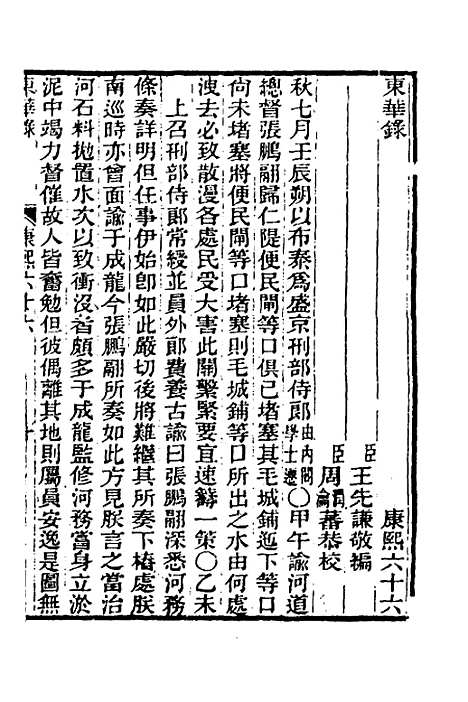 東華錄　康熙六十六
臣王先謙敬編
臣周潤蕃周瀹蕃恭校
秋七月壬辰朔以布秦爲盛京刑部侍郎由內閣學士遷〇甲午諭河道
總督張鵬翮歸仁隄便民閘等口俱已堵塞其毛城鋪迤下等口
尙未堵塞將便民閘等口堵塞則毛城鋪等口所出之水由何處
洩去必致散漫各處民受大害此關繫緊要宜速籌一策〇乙未
上召刑部侍郎常綬並員外郎費養古諭曰張鵬翮深悉河務
條奏詳明但任事伊始卽如此嚴切後將難繼其所奏下樁處朕
南巡時亦曾面諭于成龍今張鵬翮所奏如此方見朕言之當治
河石料拋置水次以致衝沒者頗多于成龍監修河務當身立淤
泥中竭力督催故人皆奮勉但彼偶離其地則屬員安逸是圖無
東華錄　康熙六十六　一